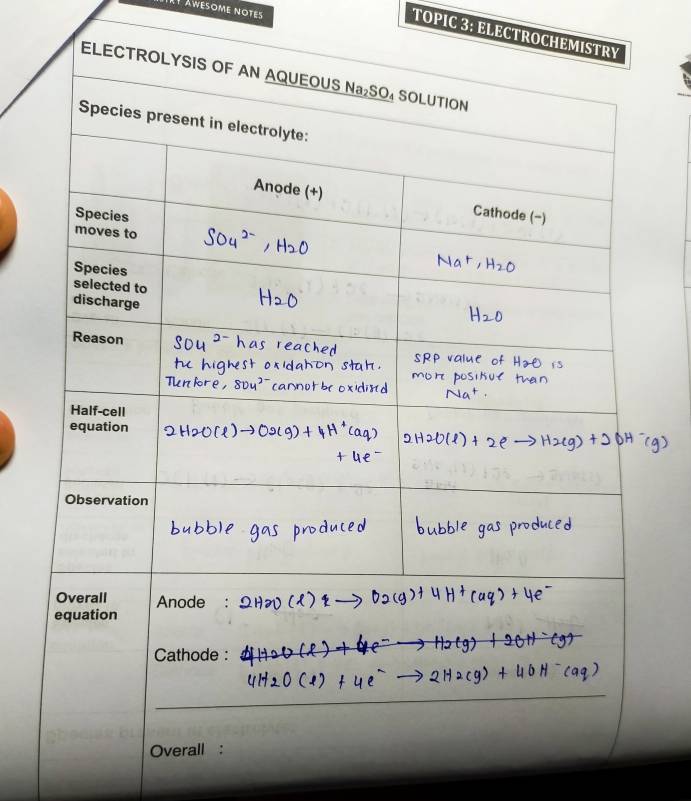 AWESOME NOTES
TOPIC 3: ELECTROCHEMISTRY
ELECTROLYSIS OF AN AQUEOUS Na₂SO₄ SOLUTION
Species present in electrolyte:
Anode (+)
Cathode (–)
Species
moves to
SO4²⁻, H2O
Na⁺, H2O
Species
selected to
discharge
H2O
H2O
Reason
SO4²⁻ has reached
the highest oxidation state.
Therefore, SO4²⁻ cannot be oxidised
SRP value of H2O is
more positive than
Na⁺.
Half-cell
equation
2H2O(l) → O2(g) + 4H⁺(aq)
+ 4e⁻
2H2O(l) + 2e → H2(g) + 2OH⁻(g)
Observation
bubble gas produced
bubble gas produced
Overall
equation
Anode : 2H2O (l) → O2(g) + 4H⁺(aq) + 4e⁻
Cathode : 4H2O(l) + 4e⁻ → H2(g) + 2OH⁻(g)
4H2O (l) + 4e⁻ → 2H2(g) + 4OH⁻(aq)
Overall :